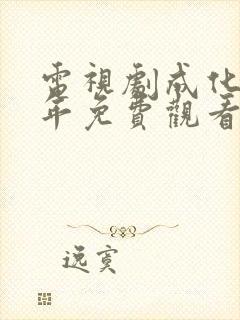 電視劇成化
年免費觀看
逸寞